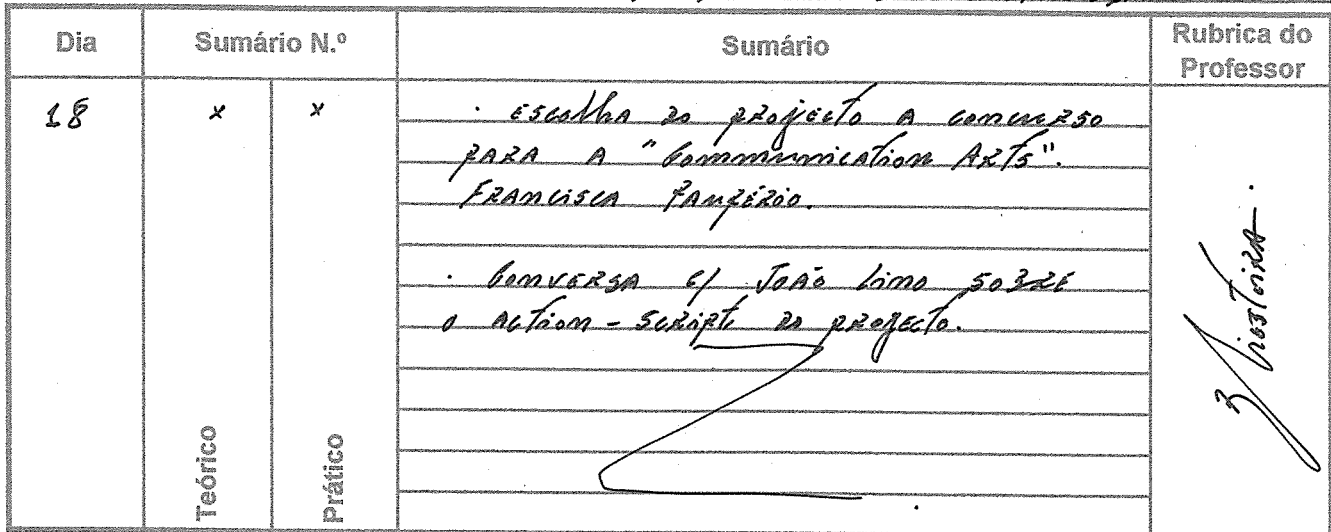 Dia Sumário N.º Sumário Rubrica do Professor
18 x x · Escolha do projecto a concurso
para a "Communication Arts".
Francisca
· Conversa c/ João Limo sobre
o Action-Script do projecto.
Teórico Prático